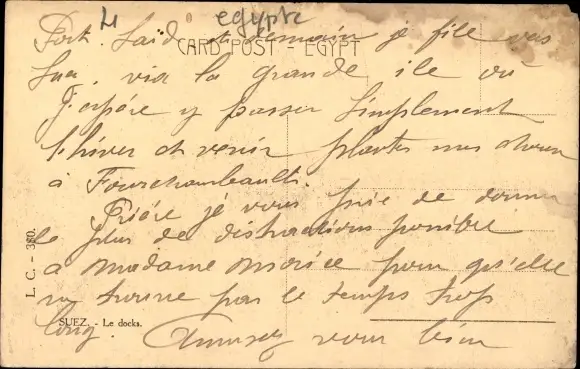 egypte
Port Saïd et demain je file vers
CARD POST - EGYPT
Suez, via la grande ile où
J'espére y passer simplement
l'hiver et venir planter mes choux
à Fourchambault.
Prière je vous prie de donner
le plus de distractions possible
a madame Morice pour qu'elle
ne trouve pas le temps trop
long. Amusez vous bien
L. C. - 380.
SUEZ. - Le docks.